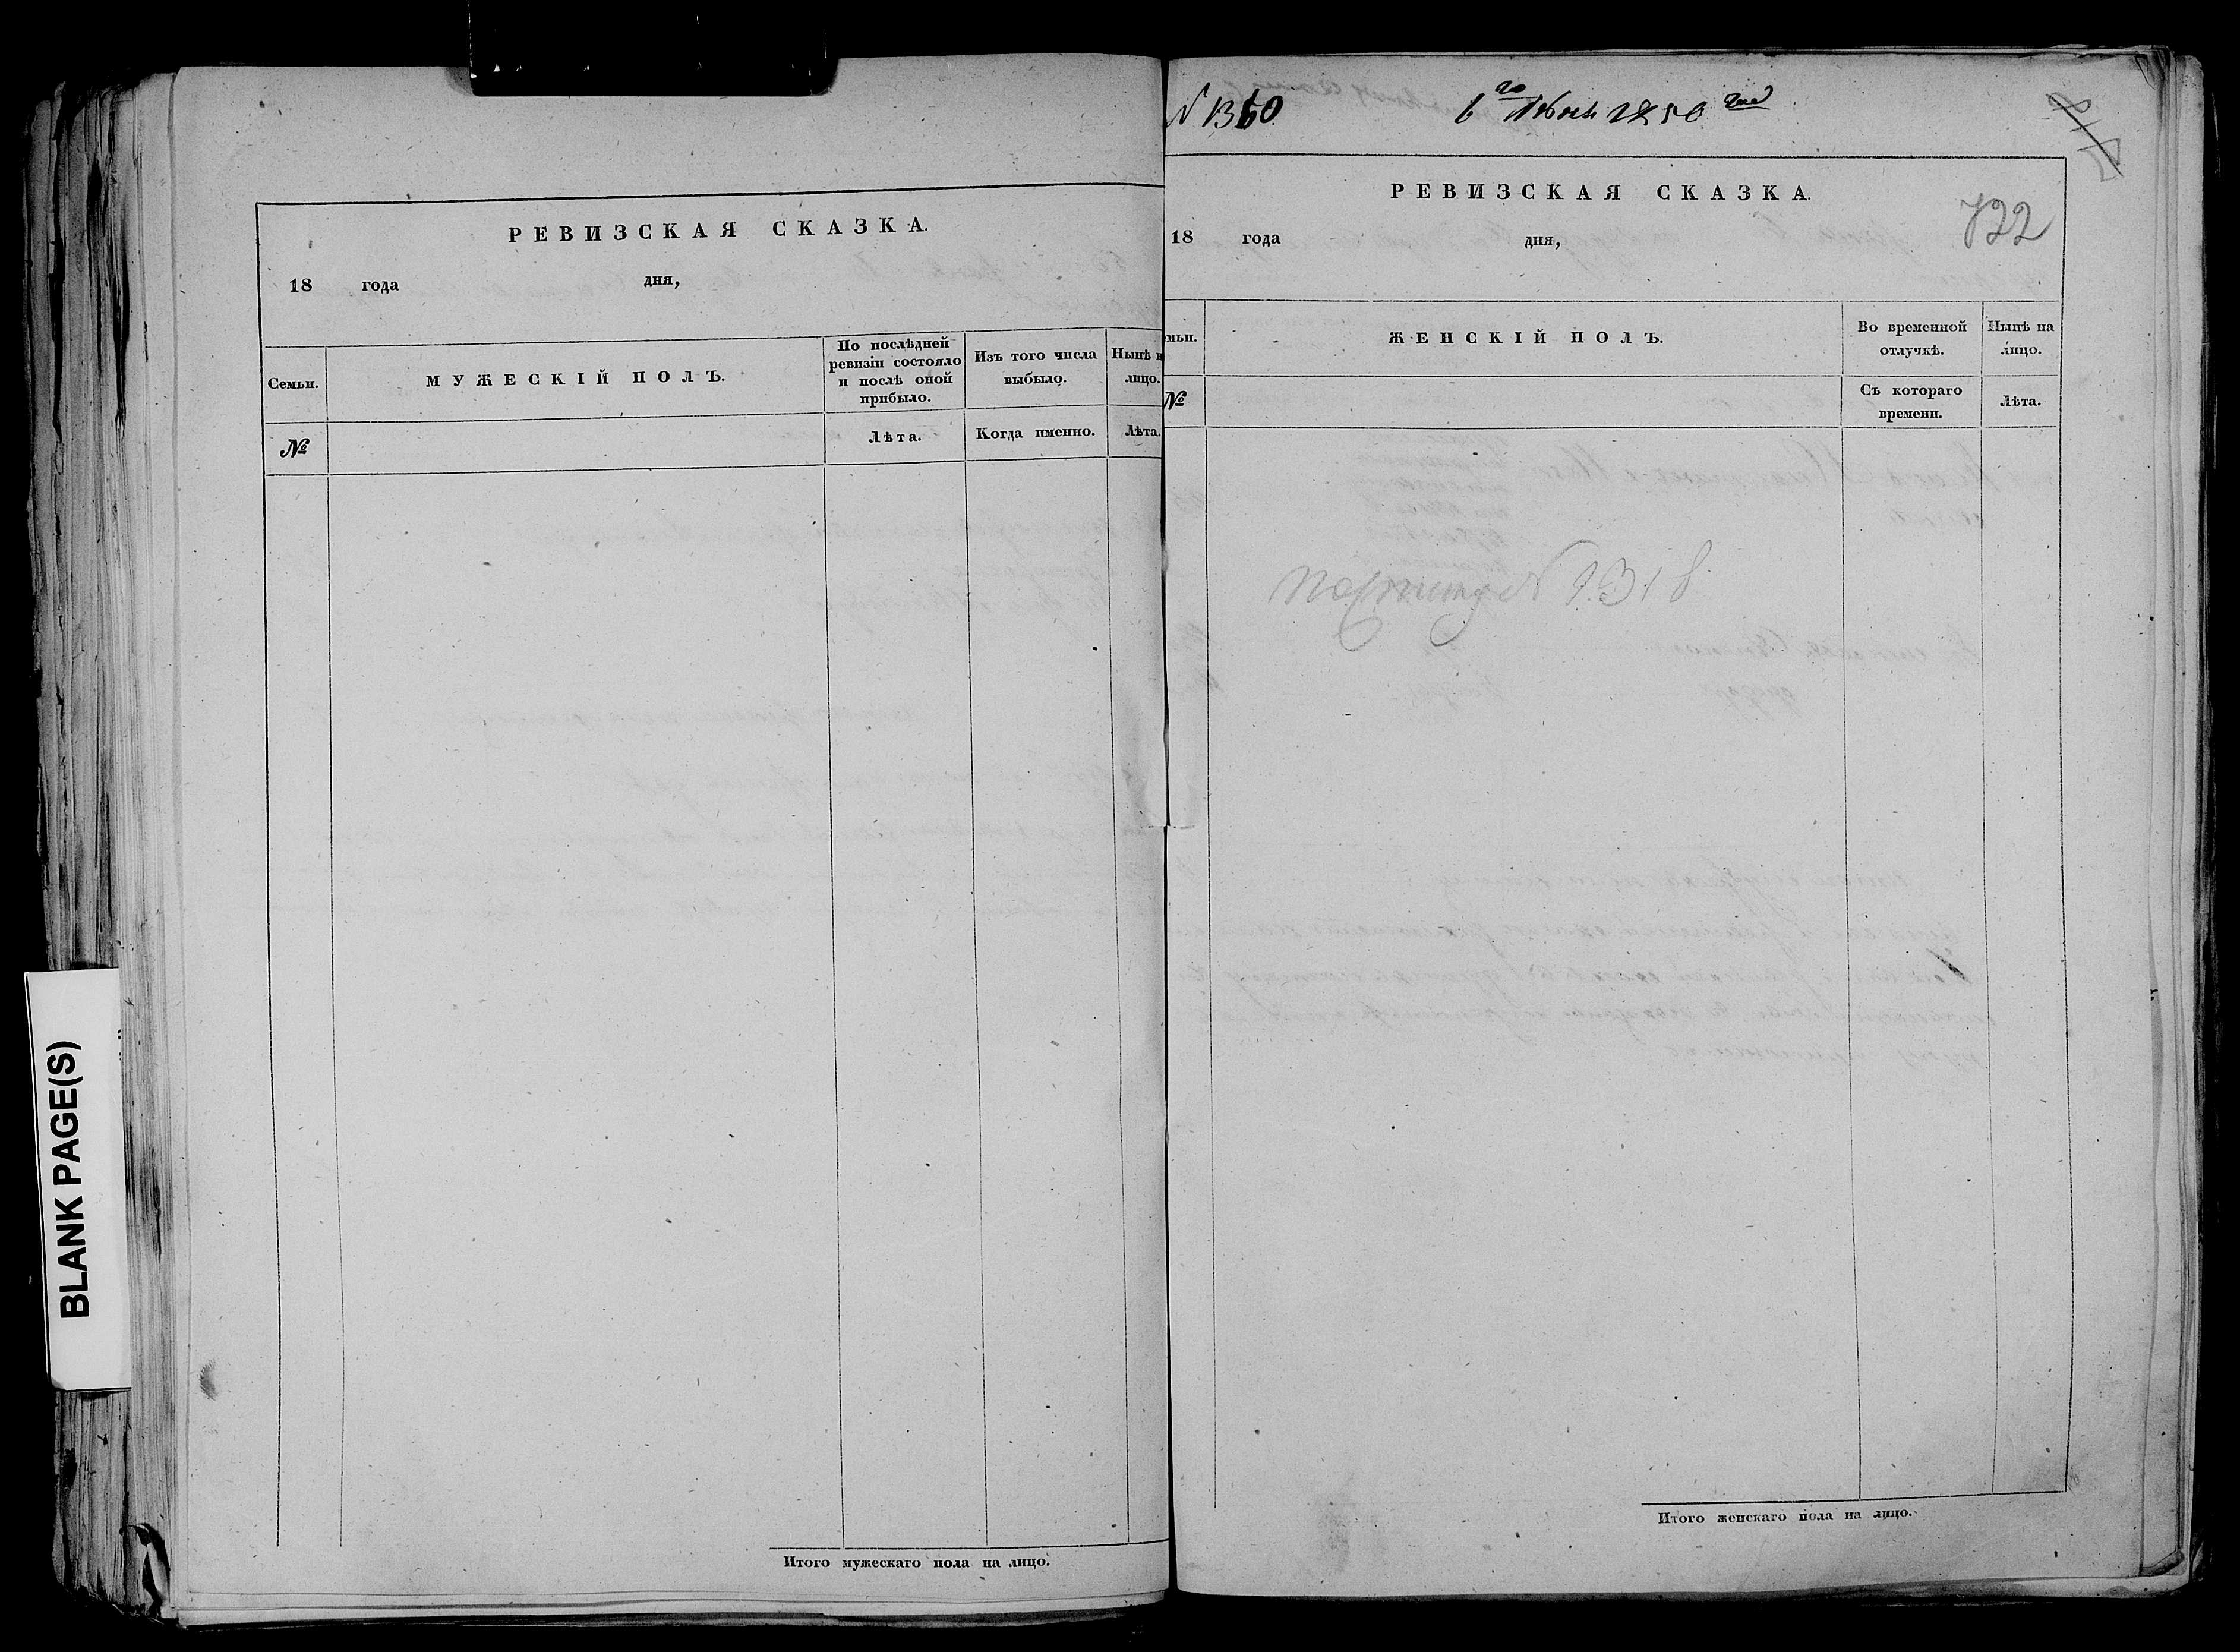 РЕВИЗСКАЯ СКАЗКА.
18 года дня,
Семьи.
МУЖЕСКІЙ ПОЛЪ.
По послѣдней
ревизіи состояло
и послѣ оной
прибыло.
Изъ того числа
выбыло.
Нынѣ н
лицо.
№
Лѣта.
Когда именно.
Лѣта.
Итого мужескаго пола на лицо.
BLANK PAGE(S)
N 1360
6го Июня 1850 года
РЕВИЗСКАЯ СКАЗКА.
722
18 года дня,
емьи.
ЖЕНСКІЙ ПОЛЪ.
Во временной
отлучкѣ.
Нынѣ на
лицо.
№
Съ котораго
времени.
Лѣта.
N 1318
Итого женскаго пола на лицо.